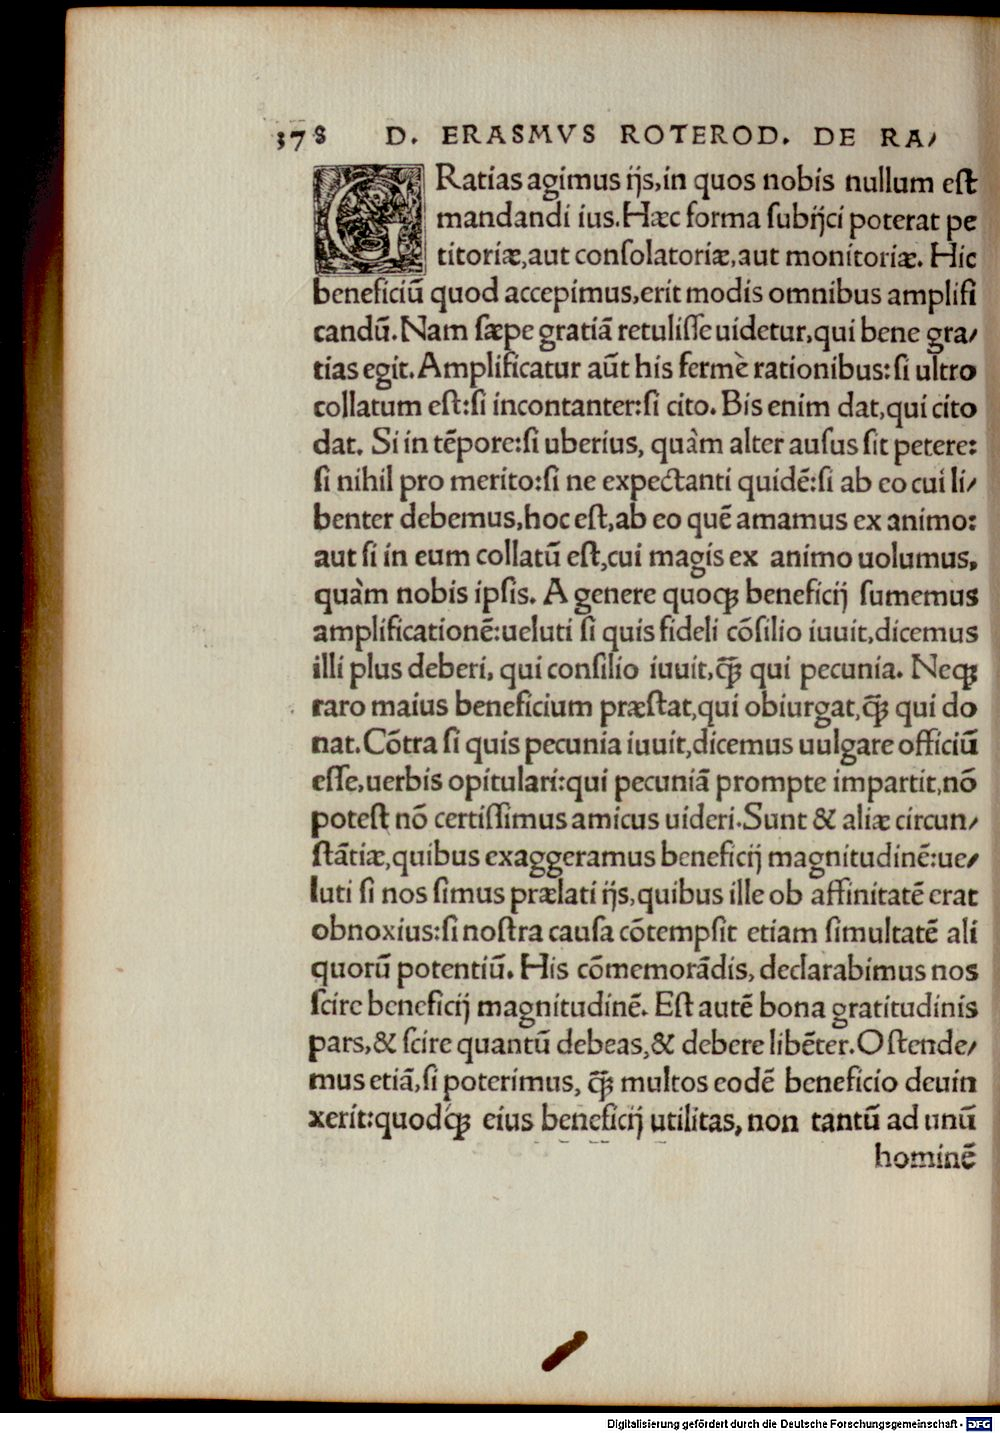 378 D. ERASMVS ROTEROD. DE RA/
GRatias agimus ijs,in quos nobis nullum eſt
mandandi ius.Hæc forma ſubijci poterat pe
titoriæ,aut conſolatoriæ,aut monitoriæ. Hic
beneficiũ quod accepimus,erit modis omnibus amplifi
candũ.Nam ſæpe gratiã retuliſſe uidetur,qui bene gra/
tias egit.Amplificatur aũt his fermè rationibus:ſi ultro
collatum eſt:ſi incontanter:ſi cito.Bis enim dat,qui cito
dat. Si in tẽpore:ſi uberius, quàm alter auſus ſit petere:
ſi nihil pro merito:ſi ne expectanti quidẽ:ſi ab eo cui li/
benter debemus,hoc eſt,ab eo quẽ amamus ex animo:
aut ſi in eum collatũ eſt,cui magis ex animo uolumus,
quàm nobis ipſis. A genere quoqꝫ beneficij ſumemus
amplificationẽ:ueluti ſi quis fideli cõſilio iuuit,dicemus
illi plus deberi, qui conſilio iuuit,q̃ꝫ qui pecunia. Neqꝫ
raro maius beneficium præſtat,qui obiurgat,q̃ꝫ qui do
nat.Cõtra ſi quis pecunia iuuit,dicemus uulgare officiũ
eſſe,uerbis opitulari:qui pecuniã prompte impartit,nõ
poteſt nõ certiſſimus amicus uideri.Sunt & aliæ circun/
ſtãtiæ,quibus exaggeramus beneficij magnitudinẽ:ue/
luti ſi nos ſimus prælati ijs,quibus ille ob affinitatẽ erat
obnoxius:ſi noſtra cauſa cõtempſit etiam ſimultatẽ ali
quorũ potentiũ. His cõmemorãdis, declarabimus nos
ſcire beneficij magnitudinẽ. Eſt autẽ bona gratitudinis
pars,& ſcire quantũ debeas,& debere libẽter.Oſtende/
mus etiã,ſi poterimus, q̃ꝫ multos eodẽ beneficio deuin
xerit:quodq́ꝫ eius beneficij utilitas, non tantũ ad unũ
hominẽ
Digitalisierung gefördert durch die Deutsche Forschungsgemeinschaft - DFG